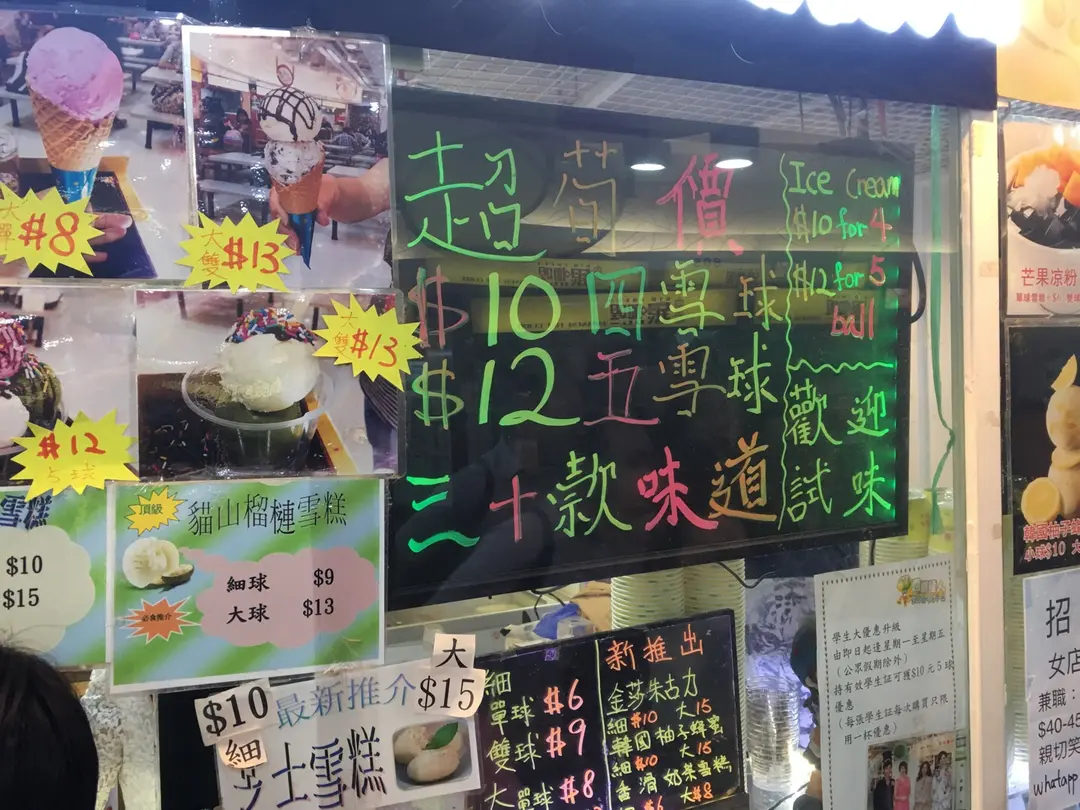 大
單 $8
大
雙 $13
大
雙 $13
$12
5球
超荀價
$10四雪球
$12五雪球
三十款味道
Ice Cream
$10 for 4
$12 for 5
ball
歡迎
試味
芒果凉粉
$10
$15
頂級
貓山榴槤雪糕
必食推介
細球 $9
大球 $13
最新推介
$10
細
大
$15
芝士雪糕
細
單球 $6
雙球 $9
大單球 $8
新推出
金莎朱古力
細$10 大15
韓國柚子蜂蜜
細$10 大15
香滑奶茶雪糕
$6 大$8
學生大優惠升級
由即日起逢星期一至星期五
(公眾假期除外)
持有效學生証可獲$10元5球
優惠
(每張學生証每次購買只限
用一杯優惠)
韓國柚子蜂
小球$10 大
招
女店
兼職:
$40-45
親切笑
whatapp